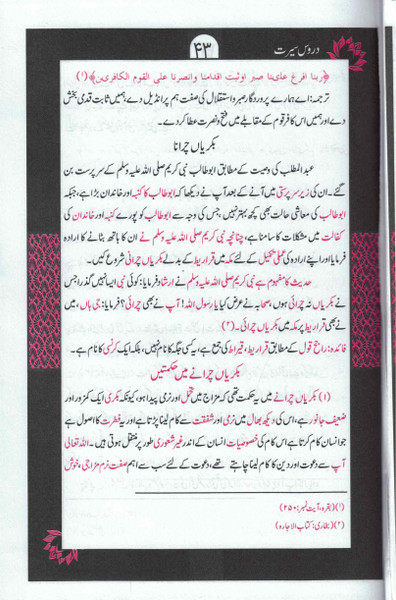 دروس سیرت
۴۳
﴿ربنا افرغ علینا صبر اوثبت اقدامنا وانصرنا علی القوم الکافرین﴾(۱)
ترجمہ: اے ہمارے پروردگار صبر و استقلال کی صفت ہم پر انڈیل دے، ہمیں ثابت قدمی بخش
دے اور ہمیں اس کافر قوم کے مقابلے میں فتح و نصرت عطا کردے۔
بکریاں چرانا
عبدالمطلب کی وصیت کے مطابق ابوطالب نبی کریم صلی اللہ علیہ وسلم کے سرپرست بن
گئے۔ ان کی زیر سرپرستی میں آنے کے بعد آپ نے دیکھا کہ ابوطالب کا کنبہ اور خاندان بڑا ہے، جبکہ
ابوطالب کی معاشی حالت بھی کچھ بہتر نہیں، جس کی وجہ سے ابوطالب کو پورے کنبہ اور خاندان کی
کفالت میں مشکلات کا سامنا ہے، چنانچہ نبی کریم صلی اللہ علیہ وسلم نے ان کا ہاتھ بٹانے کا ارادہ
فرمایا اور اپنے ارادہ کی عملی تکمیل کے لئے مکہ میں قراریط کے بدلے بکریاں چرانی شروع کیں۔
حدیث کا مفہوم ہے نبی کریم صلی اللہ علیہ وسلم نے ارشاد فرمایا: کوئی نبی ایسا نہیں گذرا جس
نے بکریاں نہ چرائی ہوں، صحابہ نے عرض کیا یا رسول اللہ! آپ نے بھی چرائی؟ فرمایا: جی ہاں، میں
نے بھی قراریط پر مکہ میں بکریاں چرائی۔(۲)
فائدہ: راجح قول کے مطابق قراریط، قیراط کی جمع ہے، یہ کسی جگہ کا نام نہیں، بلکہ ایک کرنسی کا نام ہے۔
بکریاں چرانے میں حکمتیں
(۱) بکریاں چرانے میں یہ حکمت تھی کہ مزاج میں تحمل اور نرمی پیدا ہو، کیونکہ بکری ایک کمزور اور
ضعیف جانور ہے، اس کی دیکھ بھال میں نرمی اور شفقت سے کام لینا پڑتا ہے اور یہ فطرت کا اصول ہے
جو انسان کام کرتا ہے اس کام کی خصوصیات انسان کے اندر غیر شعوری طور پر منتقل ہوتی ہیں۔ اللہ تعالی
آپ سے دعوت اور دین کا کام لینا چاہتے تھے، دعوت کے لئے سب سے اہم صفت نرم مزاجی، خوش
(۱)(بقرہ، آیت نمبر: ۲۵۰)
(۲)(بخاری: کتاب الاجارہ)